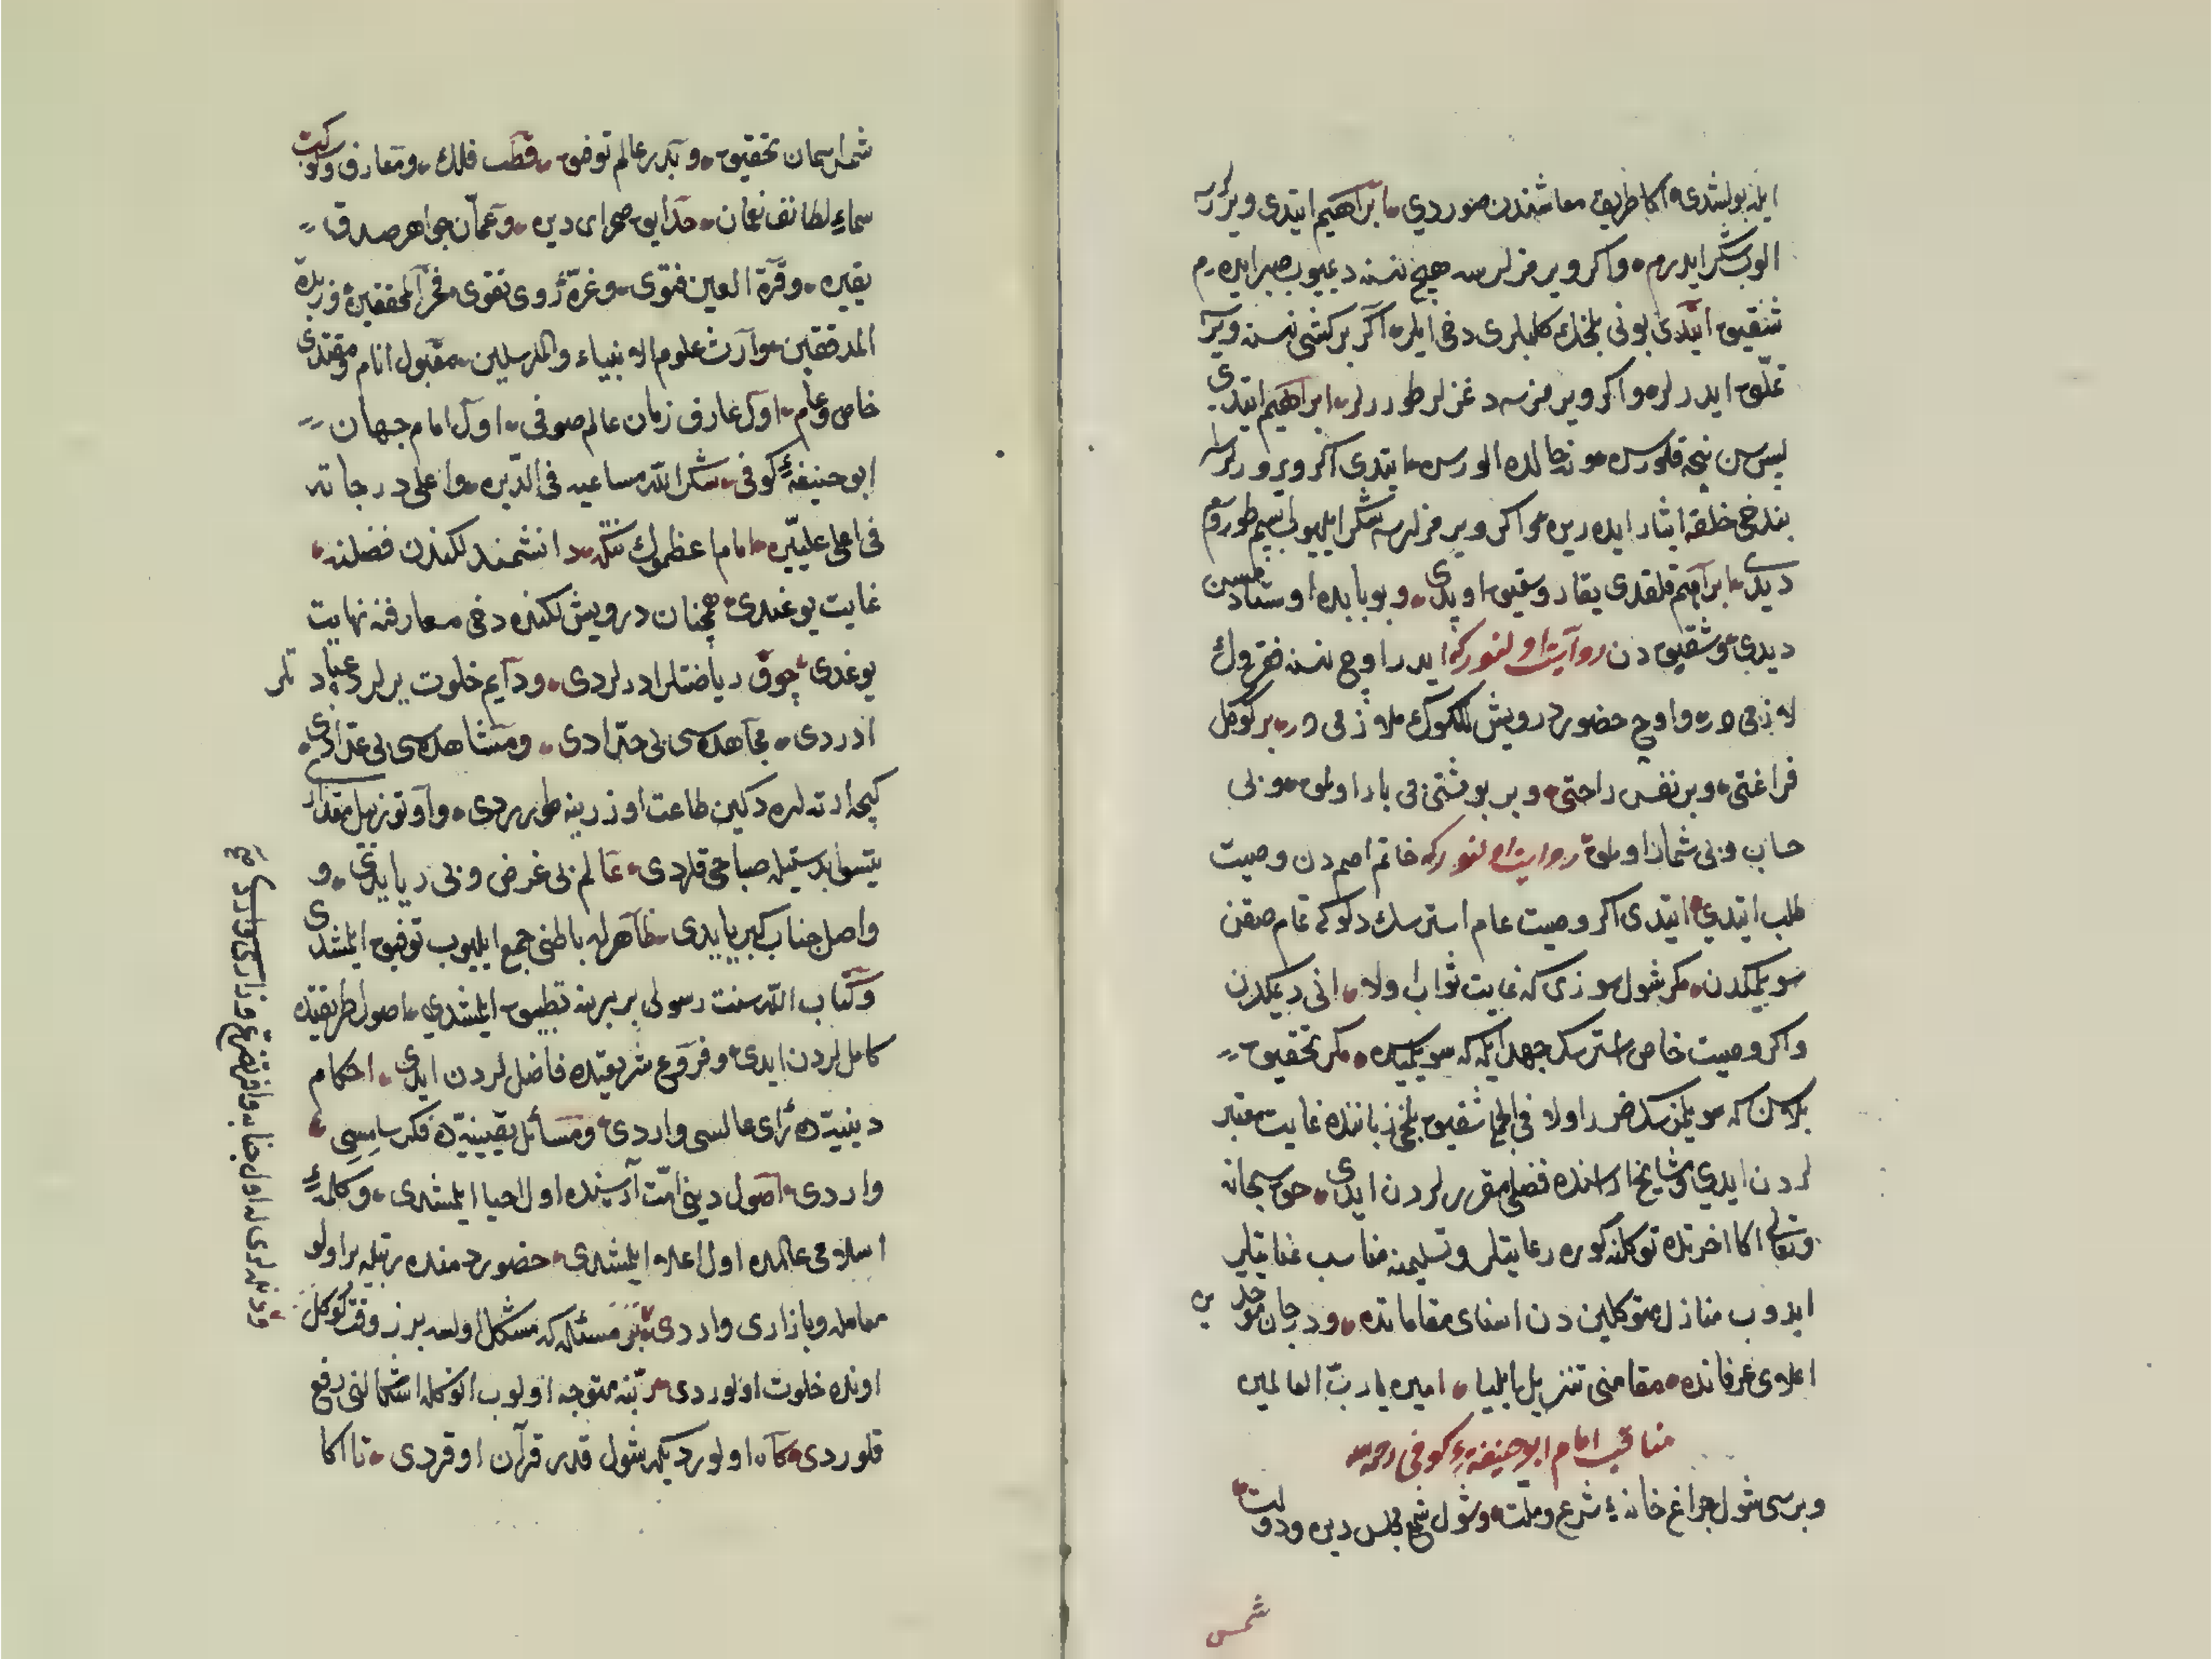 ایله بولشدی اكا طریق معاشندن صوردی ابراهیم ایتدی ویررلرسه
الوب شكر ایدرم واكر ویرمزلرسه هیچ نسنه دیمیوب صبر ایدرم
شقیق ایتدی بونی بلخك كلبلری دخی ایلر اكر بر كشی نسنه ویره
تملق ایدرلر واكر ویرمزسه دغزلر طوررلر ابراهیم ایتدی
پس سن نیجه قلورسن ونه حالده الورسن ایتدی اكر ویرورلرسه
بز دخی خلقه ایثار ایدرین واكر ویرمزلرسه شكر ایلیوب
دیدی ابراهیم قلقدی شقیق اوپدی وبو بابده اوستادسن
دیدی وشقیق دن روایت اولنوركه ایدر اوچ نسنه فقروك
لازمی در واوچ حضور درویشلكوك ملازمی در بر كوكل
فراغتی وبر نفس راحتی وبر بو شتی می بار اولمق وبی
حساب وبی شمار اولمق روایت اولنوركه خاتم اصم دن وصیت
طلب ایتدی ایتدی اكر وصیت عام استرسك دلوكی تمام صقن
سویلمكدن مكر شول سوزی كه غایت ثواب اولا انی دیمكدن
واكر وصیت خاص استرسك جهد ایله كه سویلمیسن مكر تحقیق
بلاسن كه سویلمزسك ضرر اولا فی الجمله شقیق بلخی زماننده غایت معتبر
لردن ایدی ومشایخ اراسنده فضلی مقررلردن ایدی حق سبحانه
وتعالی اكا اخرتده توكلنه كوره رعایتلر وتسلیمنه مناسب عنایتلر
ایدوب منازل متوكلین دن اسنای مقاماتده ودرجات موحدین
اعلای عرفانده مقامنی تنزیل ایلیا امین یا رب العالمین
مناقب امام ابو حنیفهٔ كوفی رحمه الله
وبرسی شول چراغ خانهٔ شرع وملت وشول شمع مجلس دین ودولت
شمس
شمس اسمان تحقیق وبدر عالم توفیق قطب فلك ومعارف وكوكب
سماء لطائف نعمان حدایق صحرای دین وعمان جواهر صدق
یقین وقرة العین فتوی وغرهٔ روی تقوی فخر المحققین وزبدة
المدققین وارث علوم الانبیاء والمرسلین مقبول انام ومقتدی
خاص وعام اول عارف زمان عالم صوفی اول امام جهان
ابو حنیفهٔ كوفی شكر الله مساعیه فی الدین واعلی درجاته
فی اعلی علیین امام اعظموك دانشمندلكندن فضلنه
غایت یوغدی همچنان درویشلكنده دخی معارفنه نهایت
یوغدی چوق ریاضتلر ادرلردی ودایم خلوت یرلرده عبادتلر
ادردی مجاهده سی بی حد ادی ومشاهده سی بی عد ادی
كیجه ارته لره دكین طاعت اوزرینه طوررردی واوتوز ییل مقداری
یتسو ابدستیله صباحی قلردی عالم بی غرض وبی ریا یدی و
واصل جناب كبریا یدی ظاهرله باطنی جمع ایلیوب توفیق ایلمشدی
وكتاب الله سنت رسولی بر برینه تطبیق ایلمشدی اصول طریقتده
كامللردن ایدی وفروع شریعتده فاضللردن ایدی احكام
دینیه ده رای عالسی واردی ومسائل یقینیه ده فكر سامیسی
واردی اصول دینی امت آراسنده اول احیا ایلمشدی وكلمهٔ
اسلامی عالمده اول اعلا ایلمشدی حضور دمنده بر اولو
معامله وبازاری واردی بر مسئله كه مشكل اولسه بر زوقت كوكل
اونده خلوت اولوردی ربنه متوجه اولوب انوكله اشكالنی رفع
قلوردی كاه اولوردیكه شول قدر قرآن اوقردی تا اكا